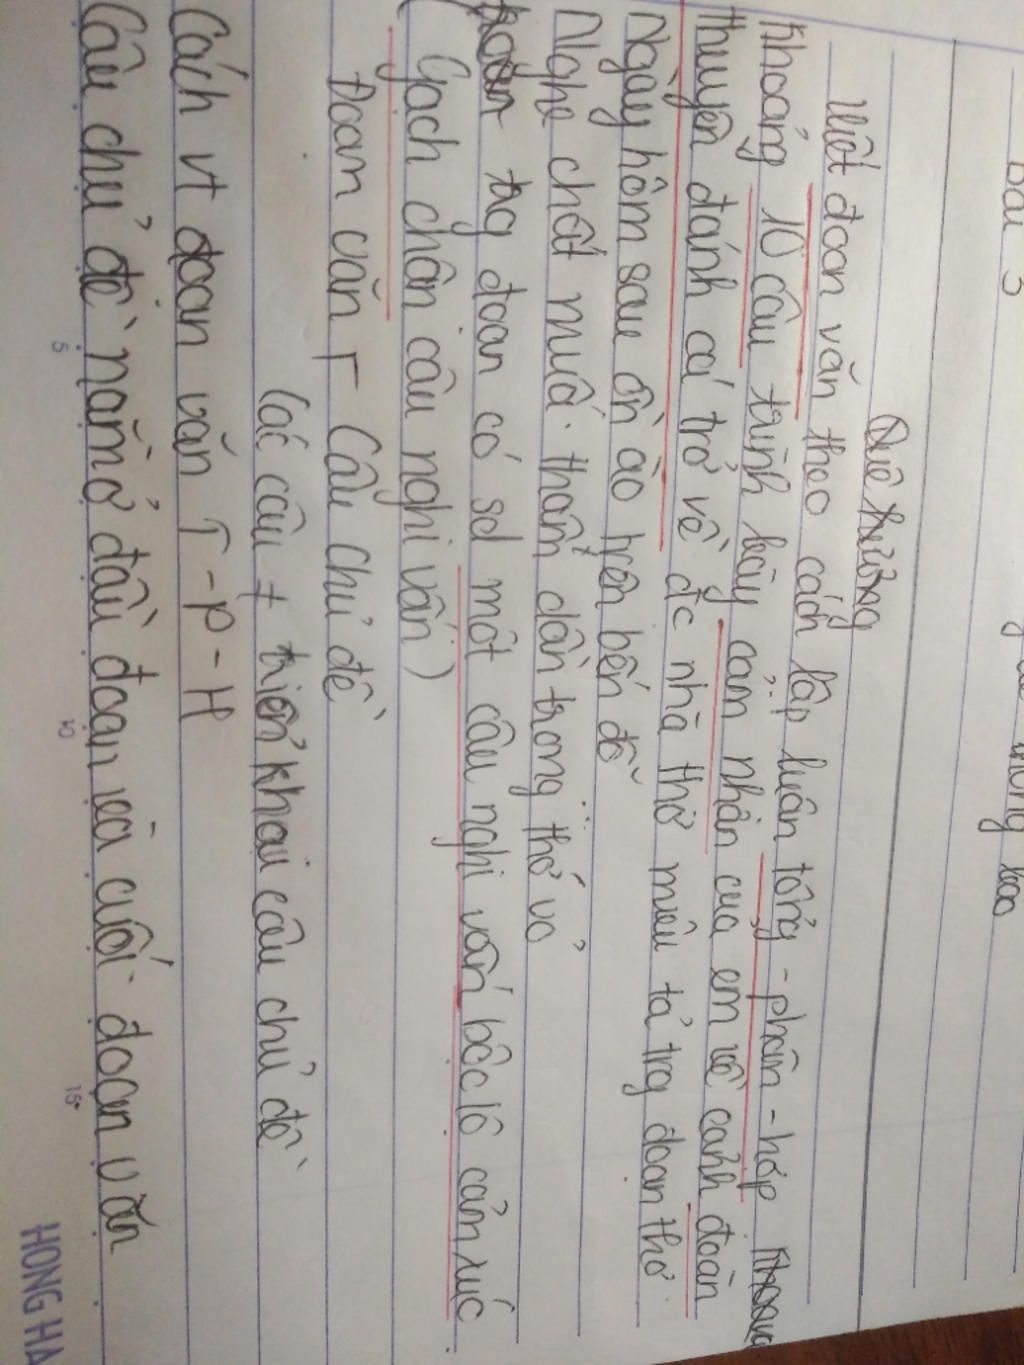 Bài 3
Quê hương
Viết đoạn văn theo cách lập luận tổng - phân - hợp
Khoảng 10 câu trình bày cảm nhận của em về cảnh đoàn
thuyền đánh cá trở về đc nhà thơ miêu tả trg đoạn thơ
Ngày hôm sau ồn ào trên bến đỗ
Nghe chất muối thấm dần trong thớ vỏ
trg đoạn có sd một câu nghi vấn bộc lộ cảm xúc
(Gạch chân câu nghi vấn)
Đoạn văn Câu chủ đề
Các câu + triển khai câu chủ đề
Cách vt đoạn văn T-P-H
Câu chủ đề nằm ở đầu đoạn và cuối đoạn văn
5
10
15
HONG HA